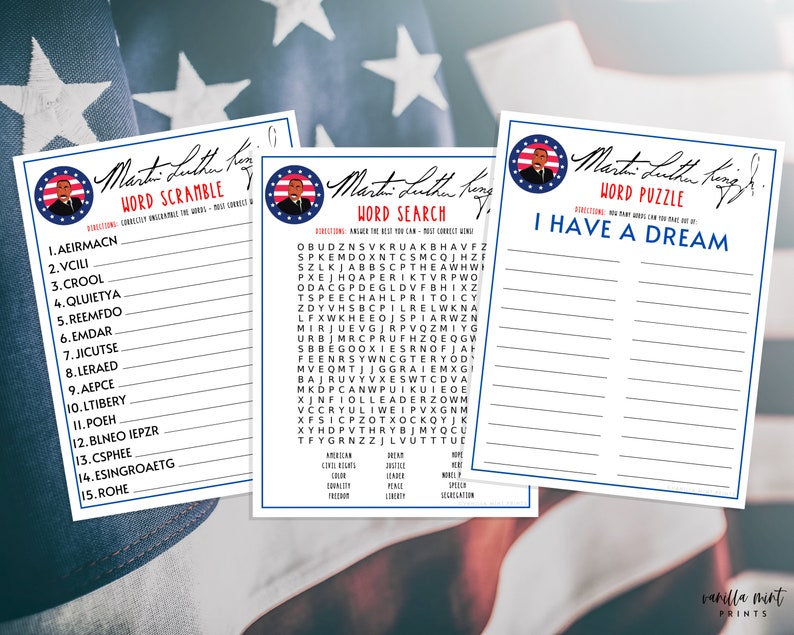 Martin Luther King J
WORD SCRAMBLE
DIRECTIONS: CORRECTLY UNSCRAMBLE THE WORDS - MOST CORRECT W
1. AEIRMACN
2. VCILI
3. CROOL
4. QLUIETYA
5. REEMFDO
6. EMDAR
7. JICUTSE
8. LERAED
9. AEPCE
10. LTIBERY
11. POEH
12. BLNEO IEPZR
13. CSPHEE
14. ESINGROAETG
15. ROHE
Martin Luther King
WORD SEARCH
DIRECTIONS: ANSWER THE BEST YOU CAN - MOST CORRECT WINS!
O B U D Z N S V K R U A K B H A V F Z
S P K E M D O X N T C S M C Q J H Z P
S Z L K J A B B S C P T H E A W H W K
P X E J H Q A P E R I K T V R P W O
O D A C G P D E G L D V F B H I X Z
T S P E E C H A H L P R I T O I C Y
Z D Y V H S B C P I L R E B L W N A
L F X W K H E E O J S P I A R W Z U
M I R J U E V G J R P V Q Z M I Y G
U R B J M R C P R U F H Z Q E Q G W
S B B E G O O X I E S R N O F J A H
F E E N R S Y W N C G T E R Y O D Y
M V E Q M T J J G G R A I E M X G
B A J R U V Y V X E S W T C D V A
M K D P C A N W P U I K U I E O E
X J N F I O L L E A D E R Z O W M
V C C R Y U L I W E I P V X G N M
X F S I C P Z O T X O C K Q Y J
X Y H D P V T H R Y B J M Y Q C U
T F Y G R N Z Z J L V U T T T U D
AMERICAN DREAM HOPE
CIVIL RIGHTS JUSTICE HER
COLOR LEADER NOBEL P
EQUALITY PEACE SPEECH
FREEDOM LIBERTY SEGREGATION
Martin Luther King Jr.
WORD PUZZLE
DIRECTIONS: HOW MANY WORDS CAN YOU MAKE OUT OF:
I HAVE A DREAM
©VANILLA MINT PRINTS
vanilla mint
PRINTS